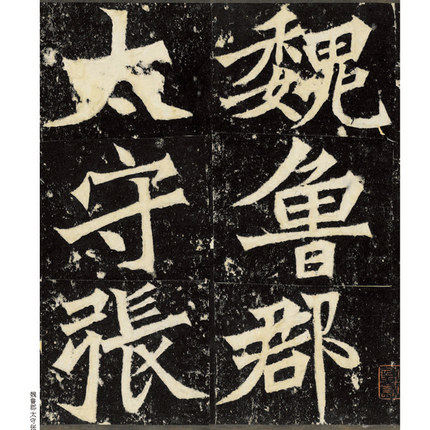 魏魯郡
太守張
魏鲁郡太守张